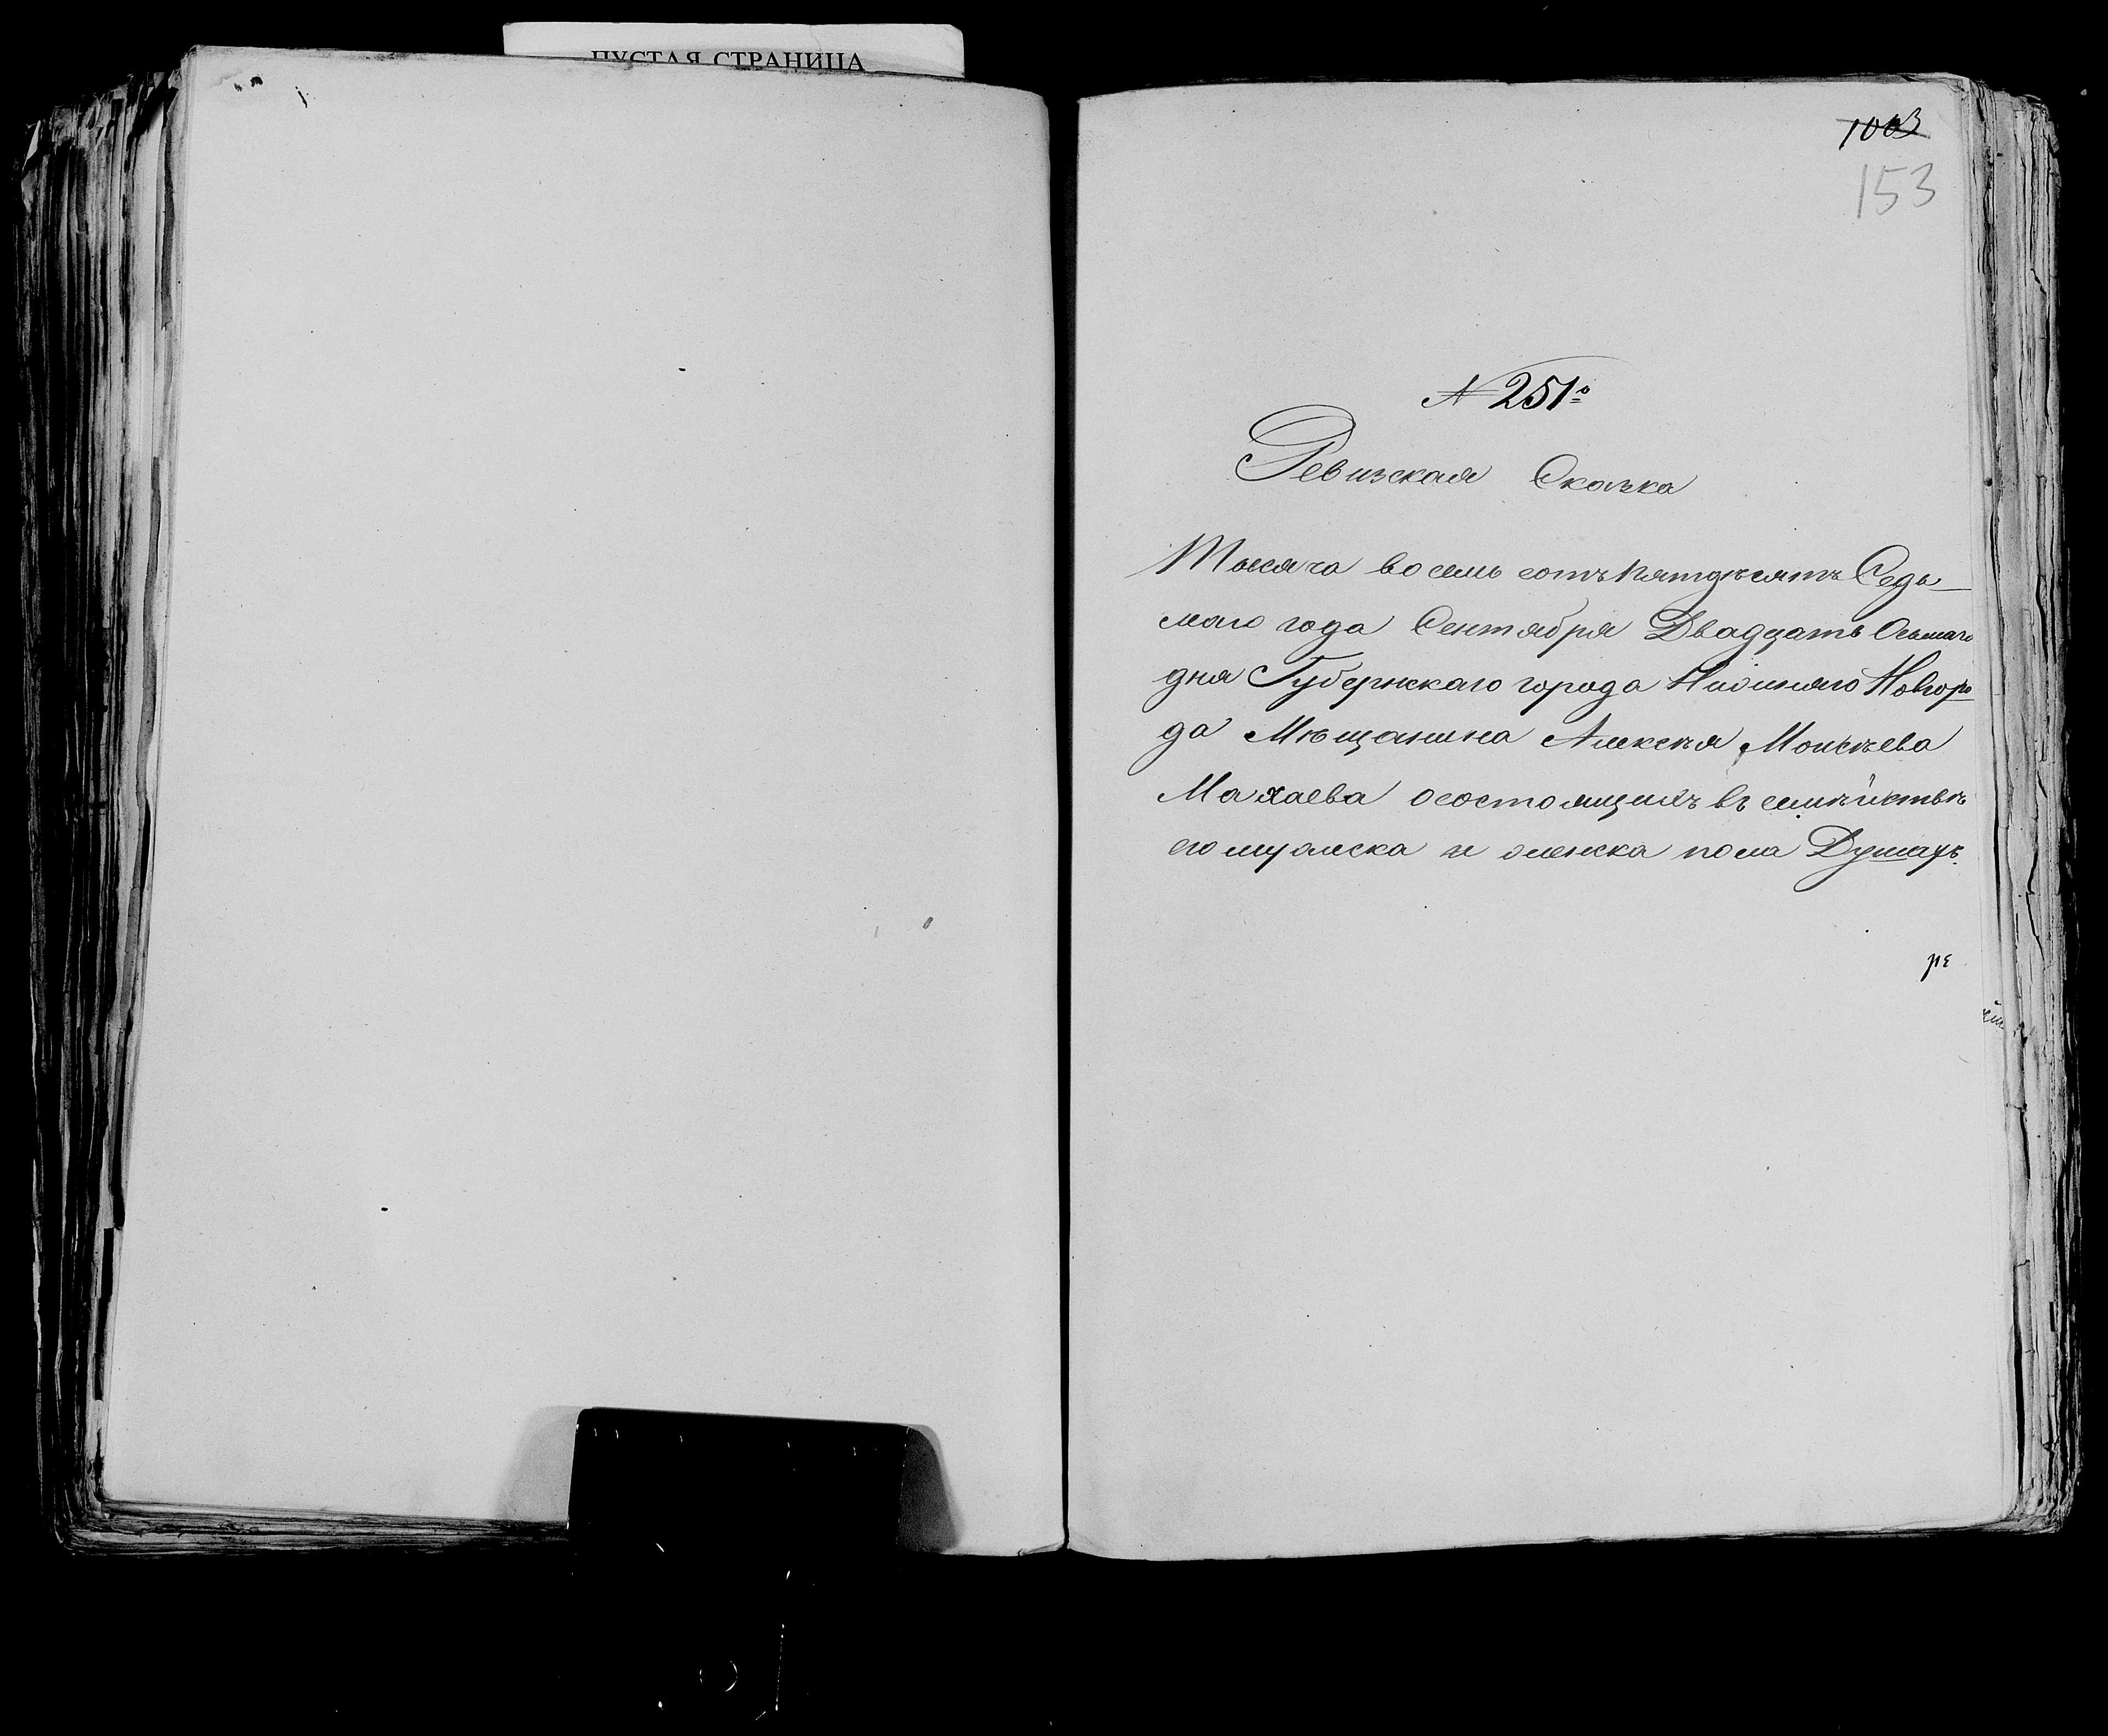 ПУСТАЯ СТРАНИЦА
1003
153
№ 251о
Ревизская Сказка
Тысяча восемь сотъ пятдѣсятъ Седь-
маго года Сентября Двадцать Осьмаго
дня Губернскаго города Нижняго Новгоро
да Мѣщанина Алексѣя Моисѣева
Махаева осостоящихъ въ семѣйствѣ
его мужеска и женска пола Душахъ.
ре